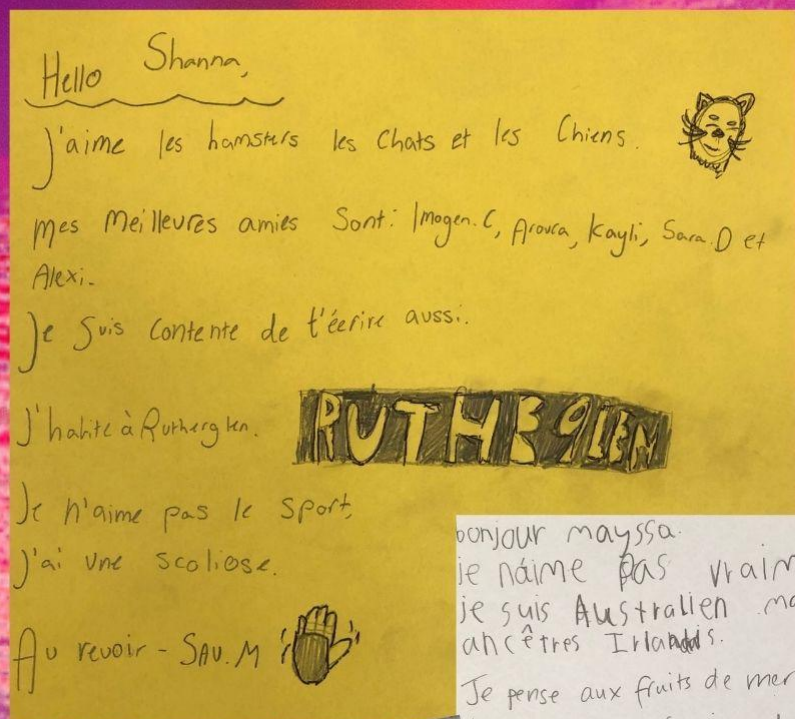 Hello Shanna,
J'aime les hamsters les chats et les Chiens.
Mes Meilleures amies Sont: Imogen.C, Arouca, Kayli, Sara.D et
Alexi.
Je Suis contente de t'éerire aussi.
J'habite à Rutherglen.
RUTHEglEN
Je n'aime pas le sport,
J'ai une scoliose.
Au revoir - SAV.M
bonjour mayssa.
je náime pas vraim
je suis Australien ma
ancêtres Irlandis.
Je pense aux fruits de mer